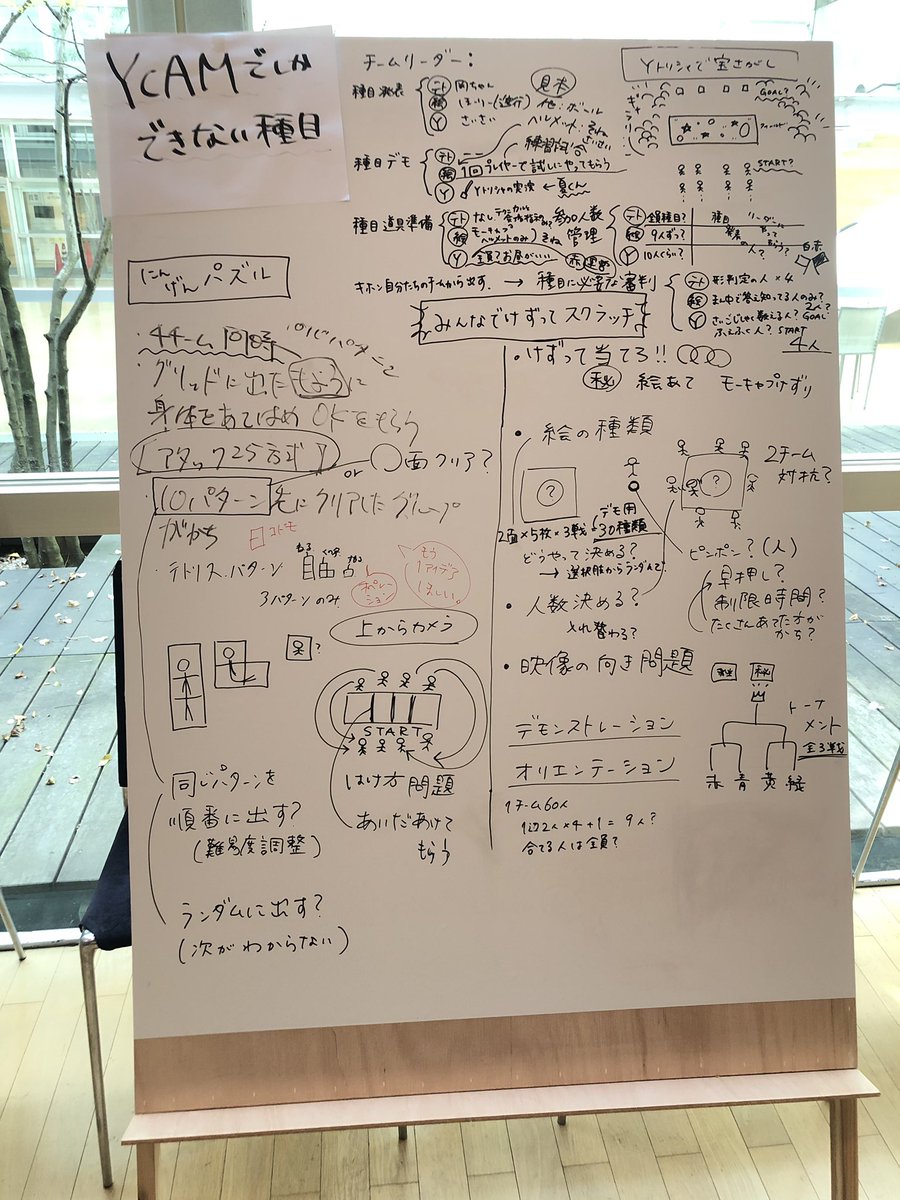 YCAMでしか
できない種目
チームリーダー：
種目発表
テト 岡ちゃん
絵 ほーりー(進行)
Y さいさい
見本
他：ボール
ヘルメット：きね
練習風
種目デモ
テト
絵 1回プレイヤーで試しにやってもらう
Y Yトリシャの実演 ← 夏くん
種目道具準備
テト なし
絵 モーキャプ ヘルメットのみ) きね
Y 全員でお昼がいい
参加人数
管理
テト 全種目?
絵 9人ずつ?
Y 10人くらい?
種目 リーダー
白 赤
キホン自分たちのチームから出す. → 種目に必要な審判
テト 形判定の人 × 4
絵 まん中で答え知ってる人のみ?
Y さいごじゃく数える人? GOAL 2人?
ふえふく人? START
4人
Yトリシャで宝さがし
ギャラリー
GOAL?
START?
にんげんパズル
4チーム同時
同じパターンで
グリッドに出たもように
身体をあてはめ OKをもらう
(アタック25方式)
or ○面クリア?
・10パターン先にクリアしたグループ
がかち
コドモ
・テトリス.パターン 自由点
3パターンのみ
オペレーション
もう
1アイデア
ほしい。
上からカメラ
START
はけ方問題
あいだあけて
もらう
同じパターンを
順番に出す?
(難易度調整)
ランダムに出す?
(次がわからない)
みんなでけずってスクラッチ
・けずって当てろ!!
秘 絵あて モーキャプけずり
・絵の種類
?
?
2チーム
対抗?
2面×5枚×3戦+デモ用
=30種類
どうやって決める?
→ 選択肢からランダムで!
・人数決める?
入れ替わる?
ピンポン?(人)
早押し?
制限時間?
たくさんあてた方が
かち?
・映像の向き問題
秘
トーナメント
全3戦
赤 青 黄 緑
デモンストレーション
オリエンテーション
1チーム60人
1辺2人×4+1=9人?
合てる人は全員?